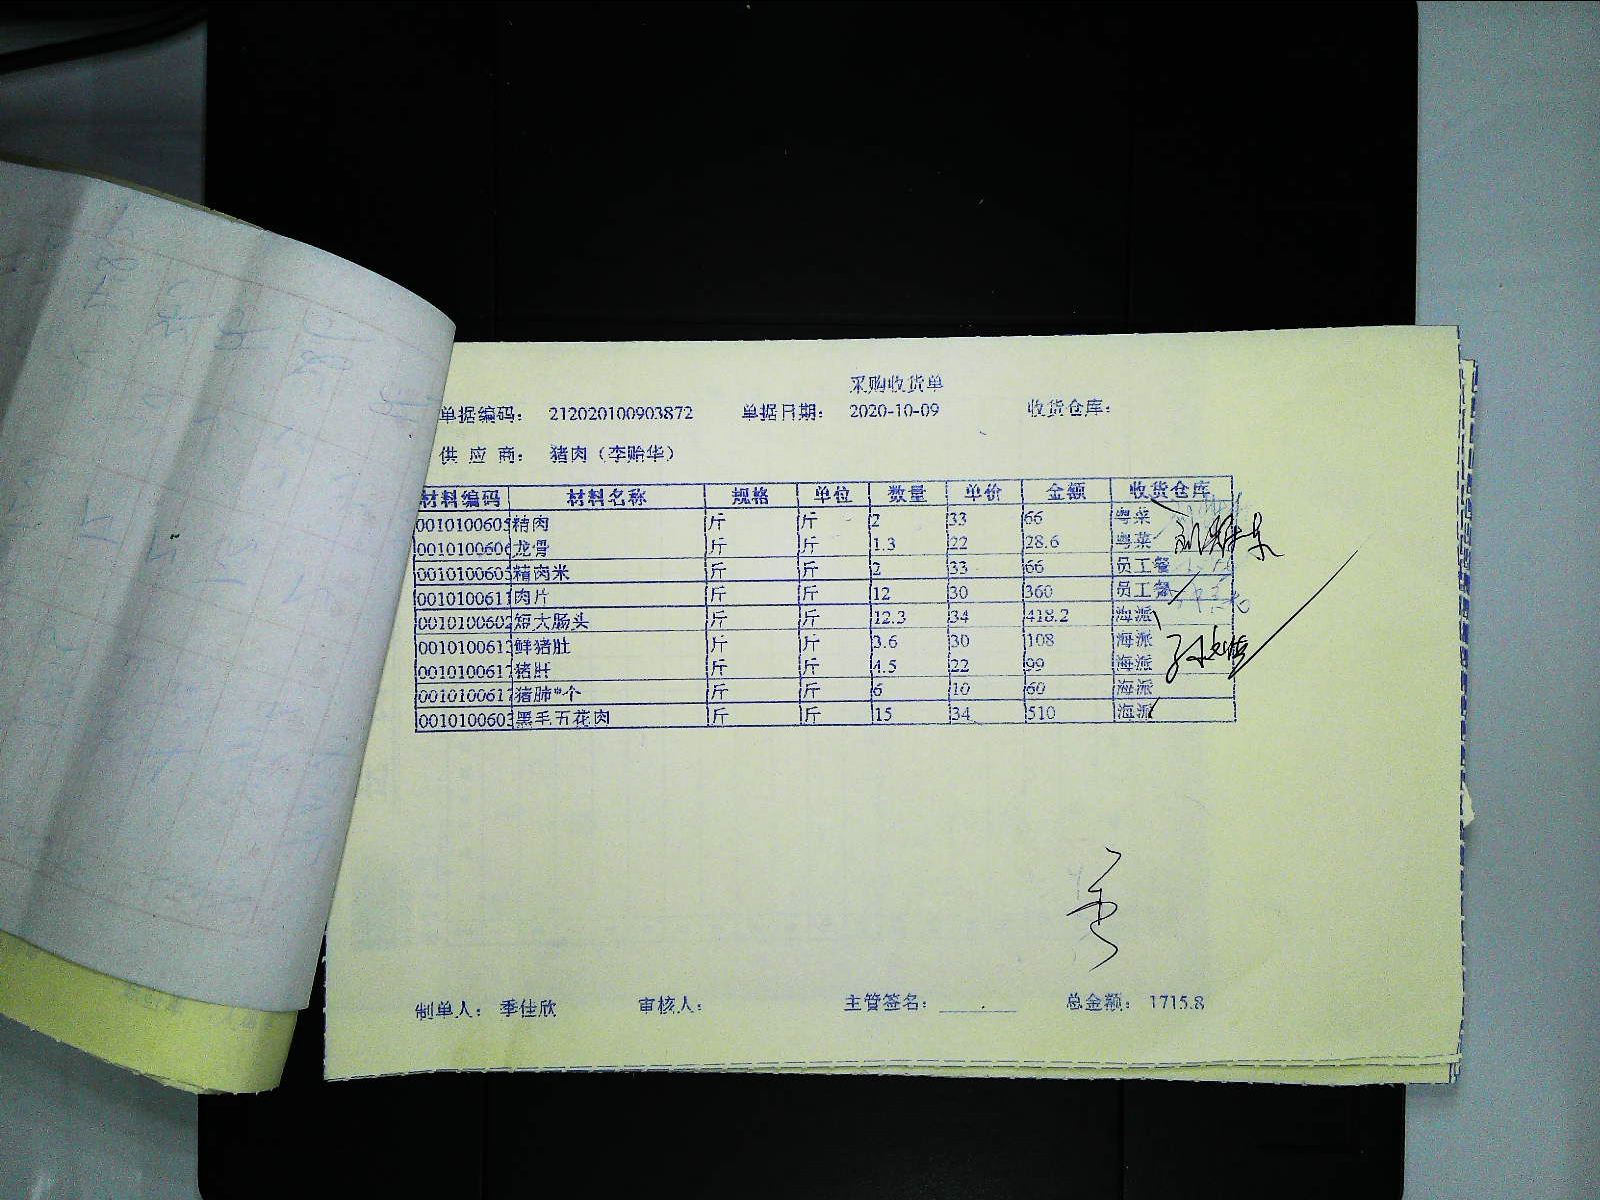 采购收货单
单据编码： 212020100903872 单据日期： 2020-10-09 收货仓库：
供 应 商： 猪肉（李贻华）
材料编码 材料名称 规格 单位 数量 单价 金额 收货仓库
0010100605 精肉 斤 斤 2 33 66 粤菜
0010100606 龙骨 斤 斤 1.3 22 28.6 粤菜
0010100605 精肉米 斤 斤 2 33 66 员工餐
0010100611 肉片 斤 斤 12 30 360 员工餐
0010100602 短大肠头 斤 斤 12.3 34 418.2 海派
0010100613 鲜猪肚 斤 斤 3.6 30 108 海派
0010100617 猪肝 斤 斤 4.5 22 99 海派
0010100617 猪肺*个 斤 斤 6 10 60 海派
0010100603 黑毛五花肉 斤 斤 15 34 510 海派
制单人： 季佳欣 审核人： 主管签名： 总金额： 1715.8